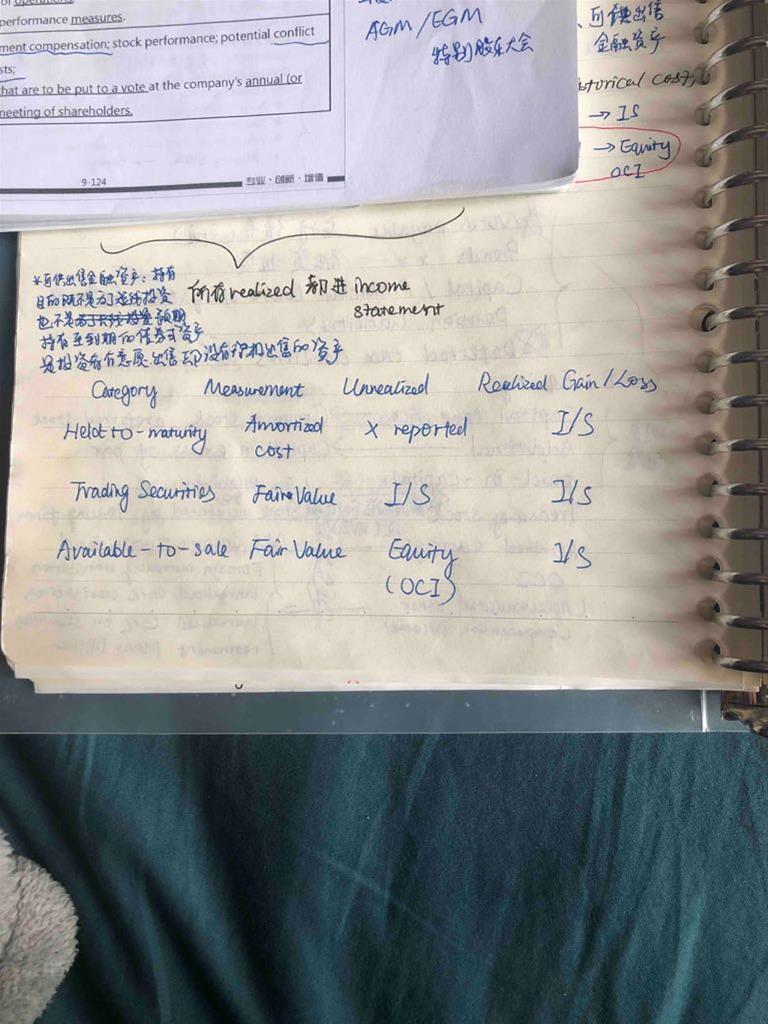 performance measures.
ment compensation; stock performance; potential conflict
sts;
that are to be put to a vote at the company's annual (or
meeting of shareholders.
9-124
专业·创新·增值
AGM/EGM
特别股东大会
、可供出售
金融资产
storical cost,
→ IS
→ Equity
OCI
*可供出售金融资产：持有
目的既不是为了
也不是
持有至到期的债券或资产
出售的资产
所有realized 都进 income
statement
Category Measurement Unrealized Realized Gain/Loss
Held to-maturity Amortized cost X reported I/S
Trading Securities Faire Value I/S I/S
Available-to-sale Fair Value Equity (OCI) I/S